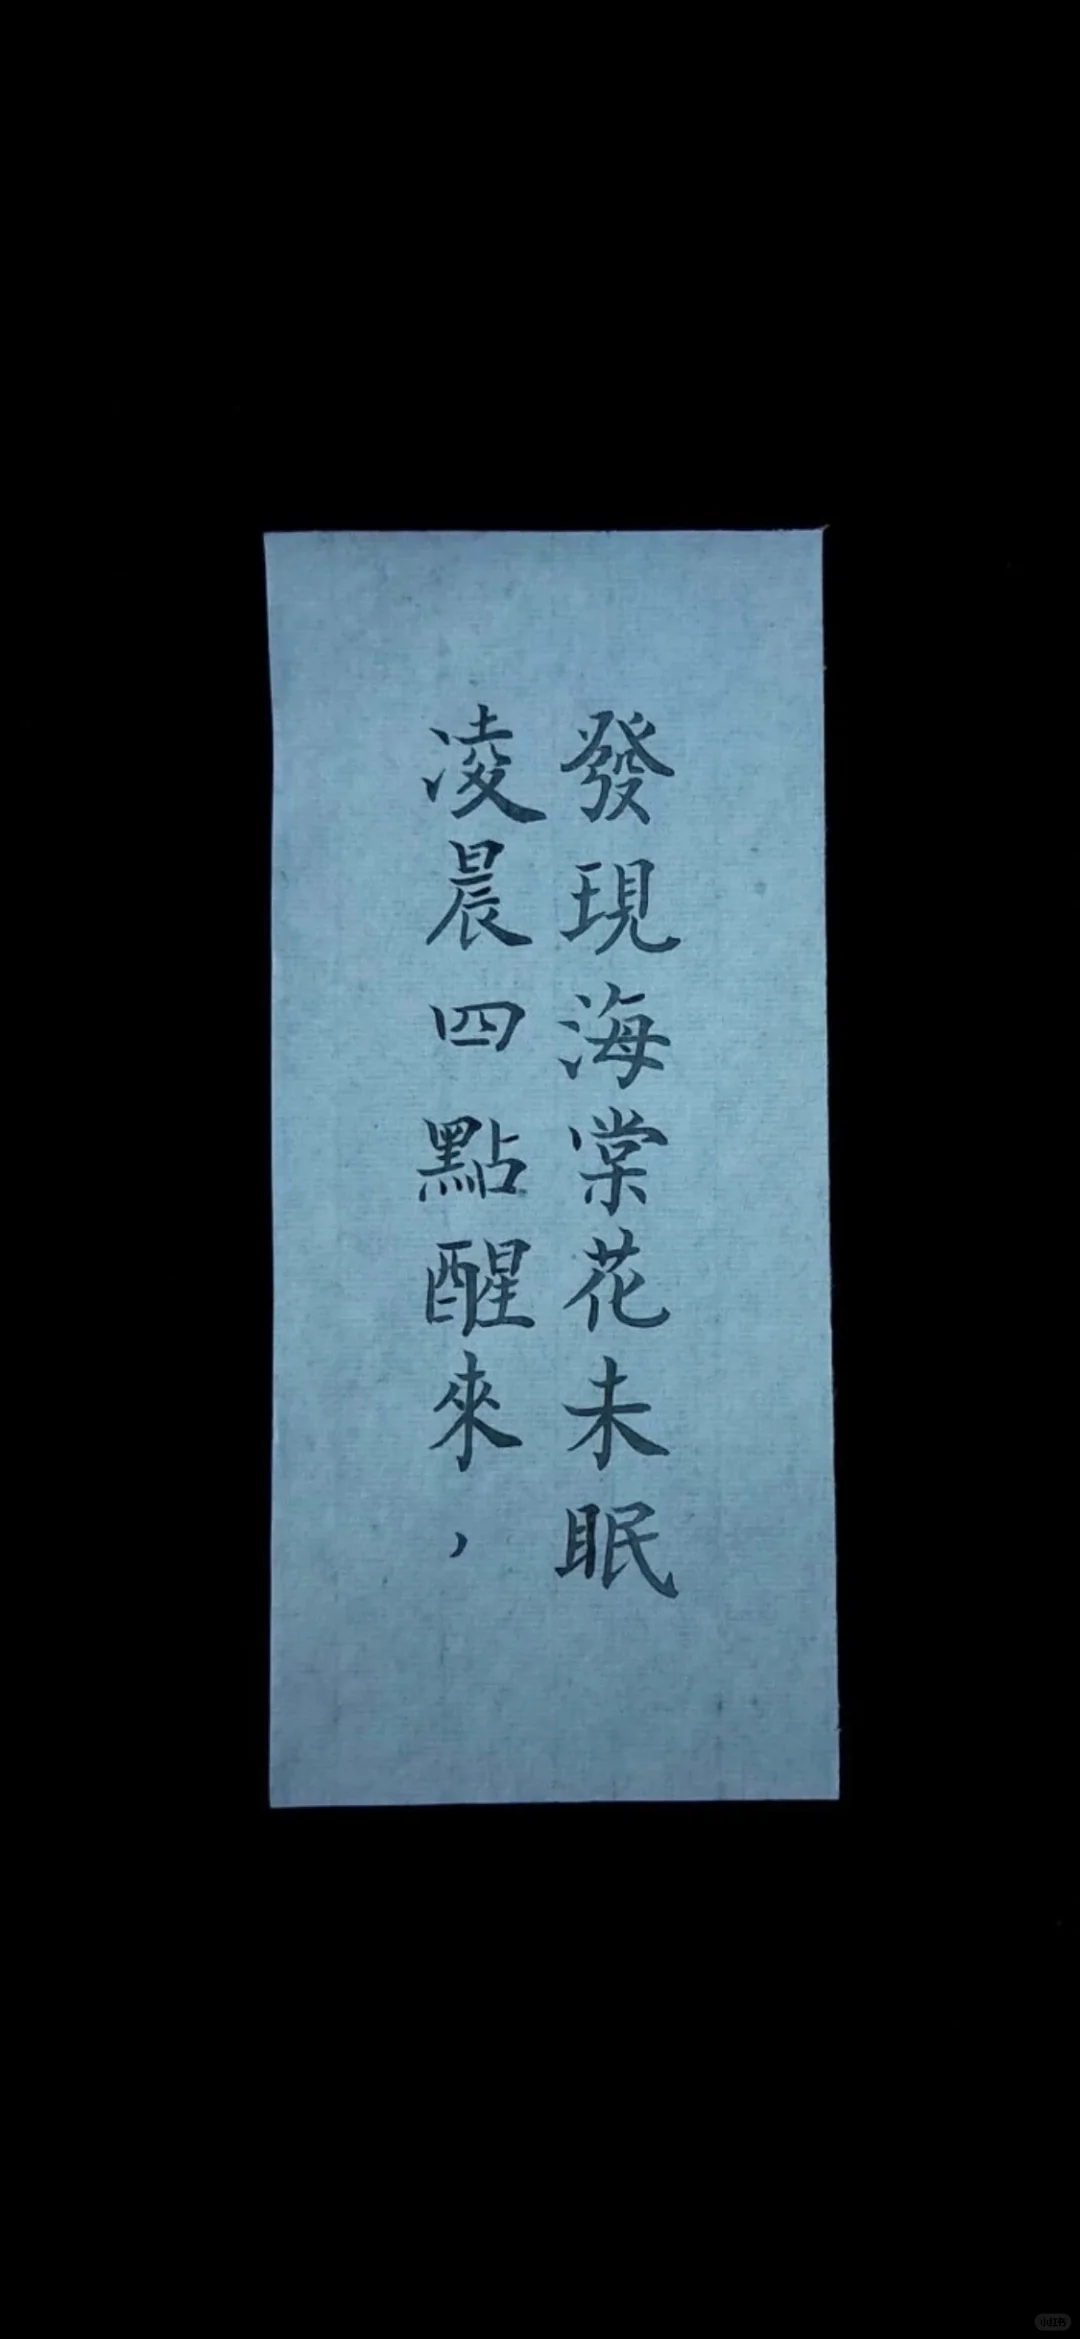 凌晨四點醒來，
發現海棠花未眠
小红书